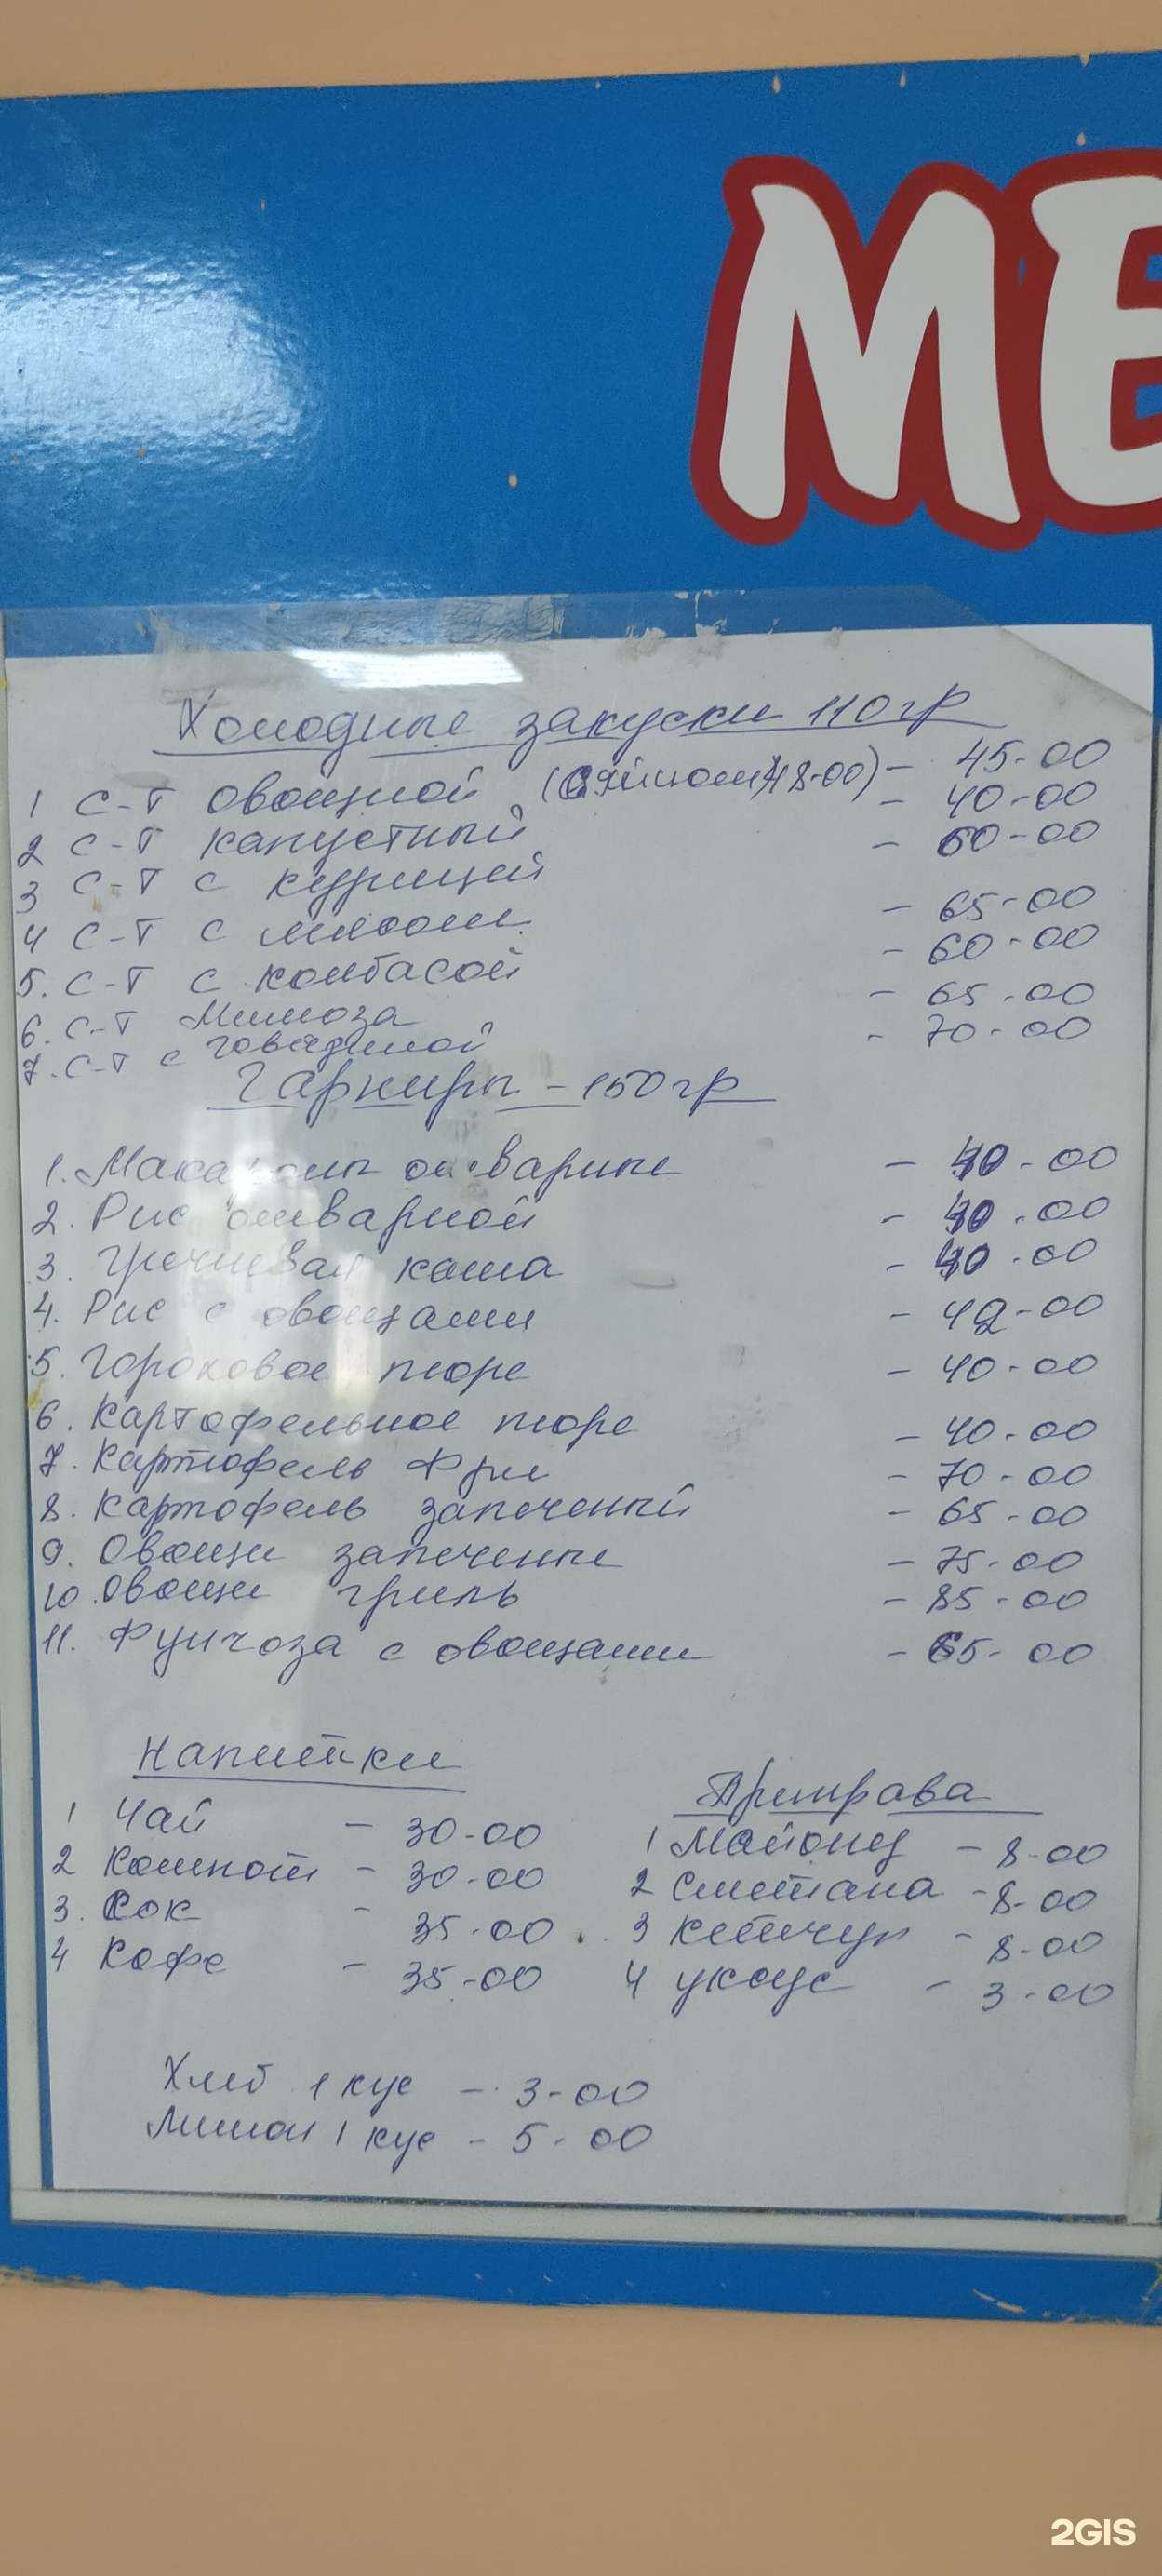 МЕ
Холодные закуски 110гр
1 С-Т овощной (с яйцом 48-00) - 45-00
2 С-Т капустный - 40-00
3 С-Т с курицей - 60-00
4 С-Т с мясом - 65-00
5. С-Т с колбасой - 60-00
6. С-Т Мимоза - 65-00
7. С-Т с говядиной - 70-00
Гарниры - 150гр
1. Макароны отварные - 40-00
2. Рис отварной - 40-00
3. Гречневая каша - 40-00
4. Рис с овощами - 42-00
5. Гороховое пюре - 40-00
6. Картофельное пюре - 40-00
7. Картофель Фри - 70-00
8. Картофель запеченый - 65-00
9. Овощи запеченые - 75-00
10. Овощи гриль - 85-00
11. Фунчоза с овощами - 65-00
Напитки
1 Чай - 30-00
2 Компот - 30-00
3. Сок - 35-00
4 Кофе - 35-00
Приправа
1 Майонез - 8-00
2 Сметана - 8-00
3 Кетчуп - 8-00
4 уксус - 3-00
Хлеб 1 кус - 3-00
Лимон 1 кус - 5-00
2GIS